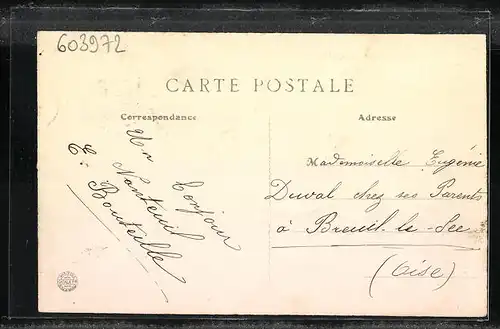 603972
CARTE POSTALE
Correspondance
Adresse
Un bonjour
Nanteuil
E. Bouteille
Mademoiselle Eugénie
Duval chez ses Parents
à Breuil-le-Sec
(Oise)